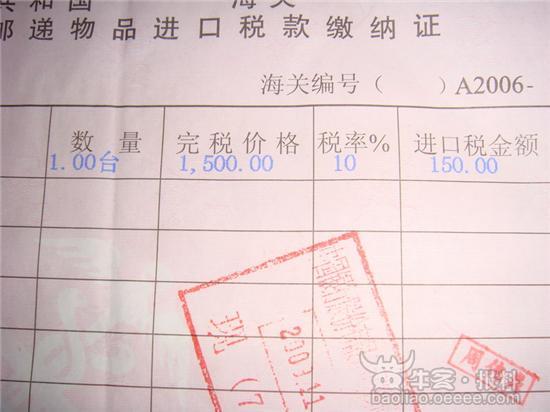 共和国 海关
邮递物品进口税款缴纳证
海关编号（ ）A2006-
数量 完税价格 税率% 进口税金额
1.00台 1,500.00 10 150.00
牛客·报料
baoliao.oeeee.com